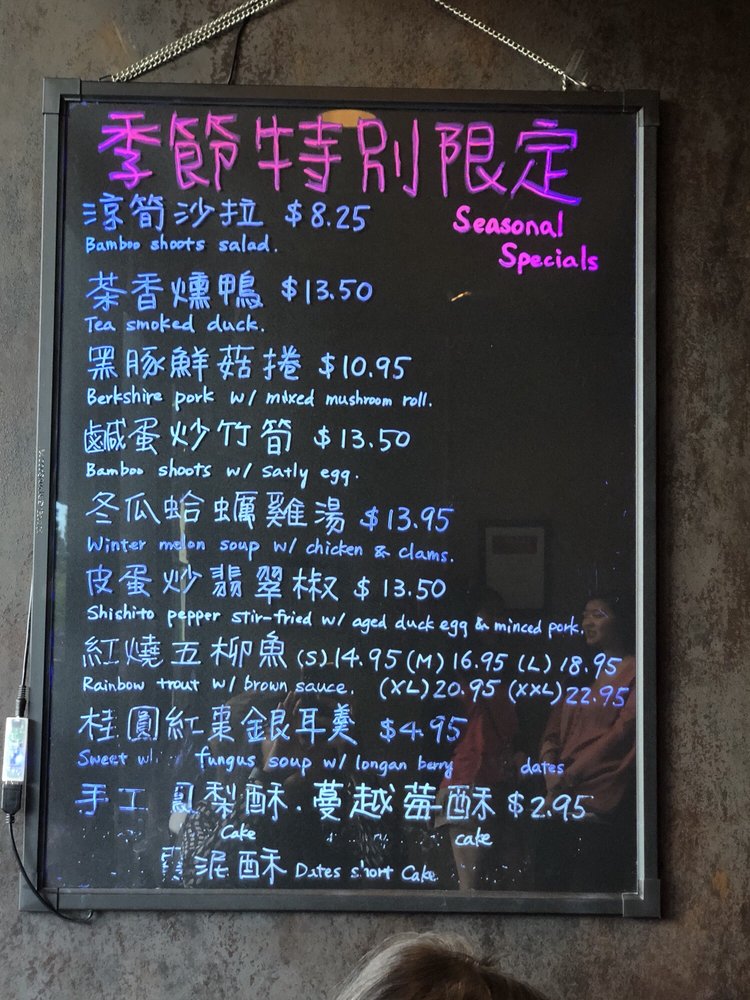 季節特別限定
Seasonal
Specials
涼筍沙拉 $8.25
Bamboo shoots salad.
茶香燻鴨 $13.50
Tea smoked duck.
黑豚鮮菇捲 $10.95
Berkshire pork w/ mixed mushroom roll.
鹹蛋炒竹筍 $13.50
Bamboo shoots w/ satly egg.
冬瓜蛤蠣雞湯 $13.95
Winter melon soup w/ chicken & clams.
皮蛋炒翡翠椒 $13.50
Shishito pepper stir-fried w/ aged duck egg & minced pork.
紅燒五柳魚 (S) 14.95 (M) 16.95 (L) 18.95
Rainbow trout w/ brown sauce. (XL) 20.95 (XXL) 22.95
桂圓紅棗銀耳羹 $4.95
Sweet fungus soup w/ longan berry dates
手工 梨酥.蔓越莓酥 $2.95
Cake cake
泥酥 Dates short Cake